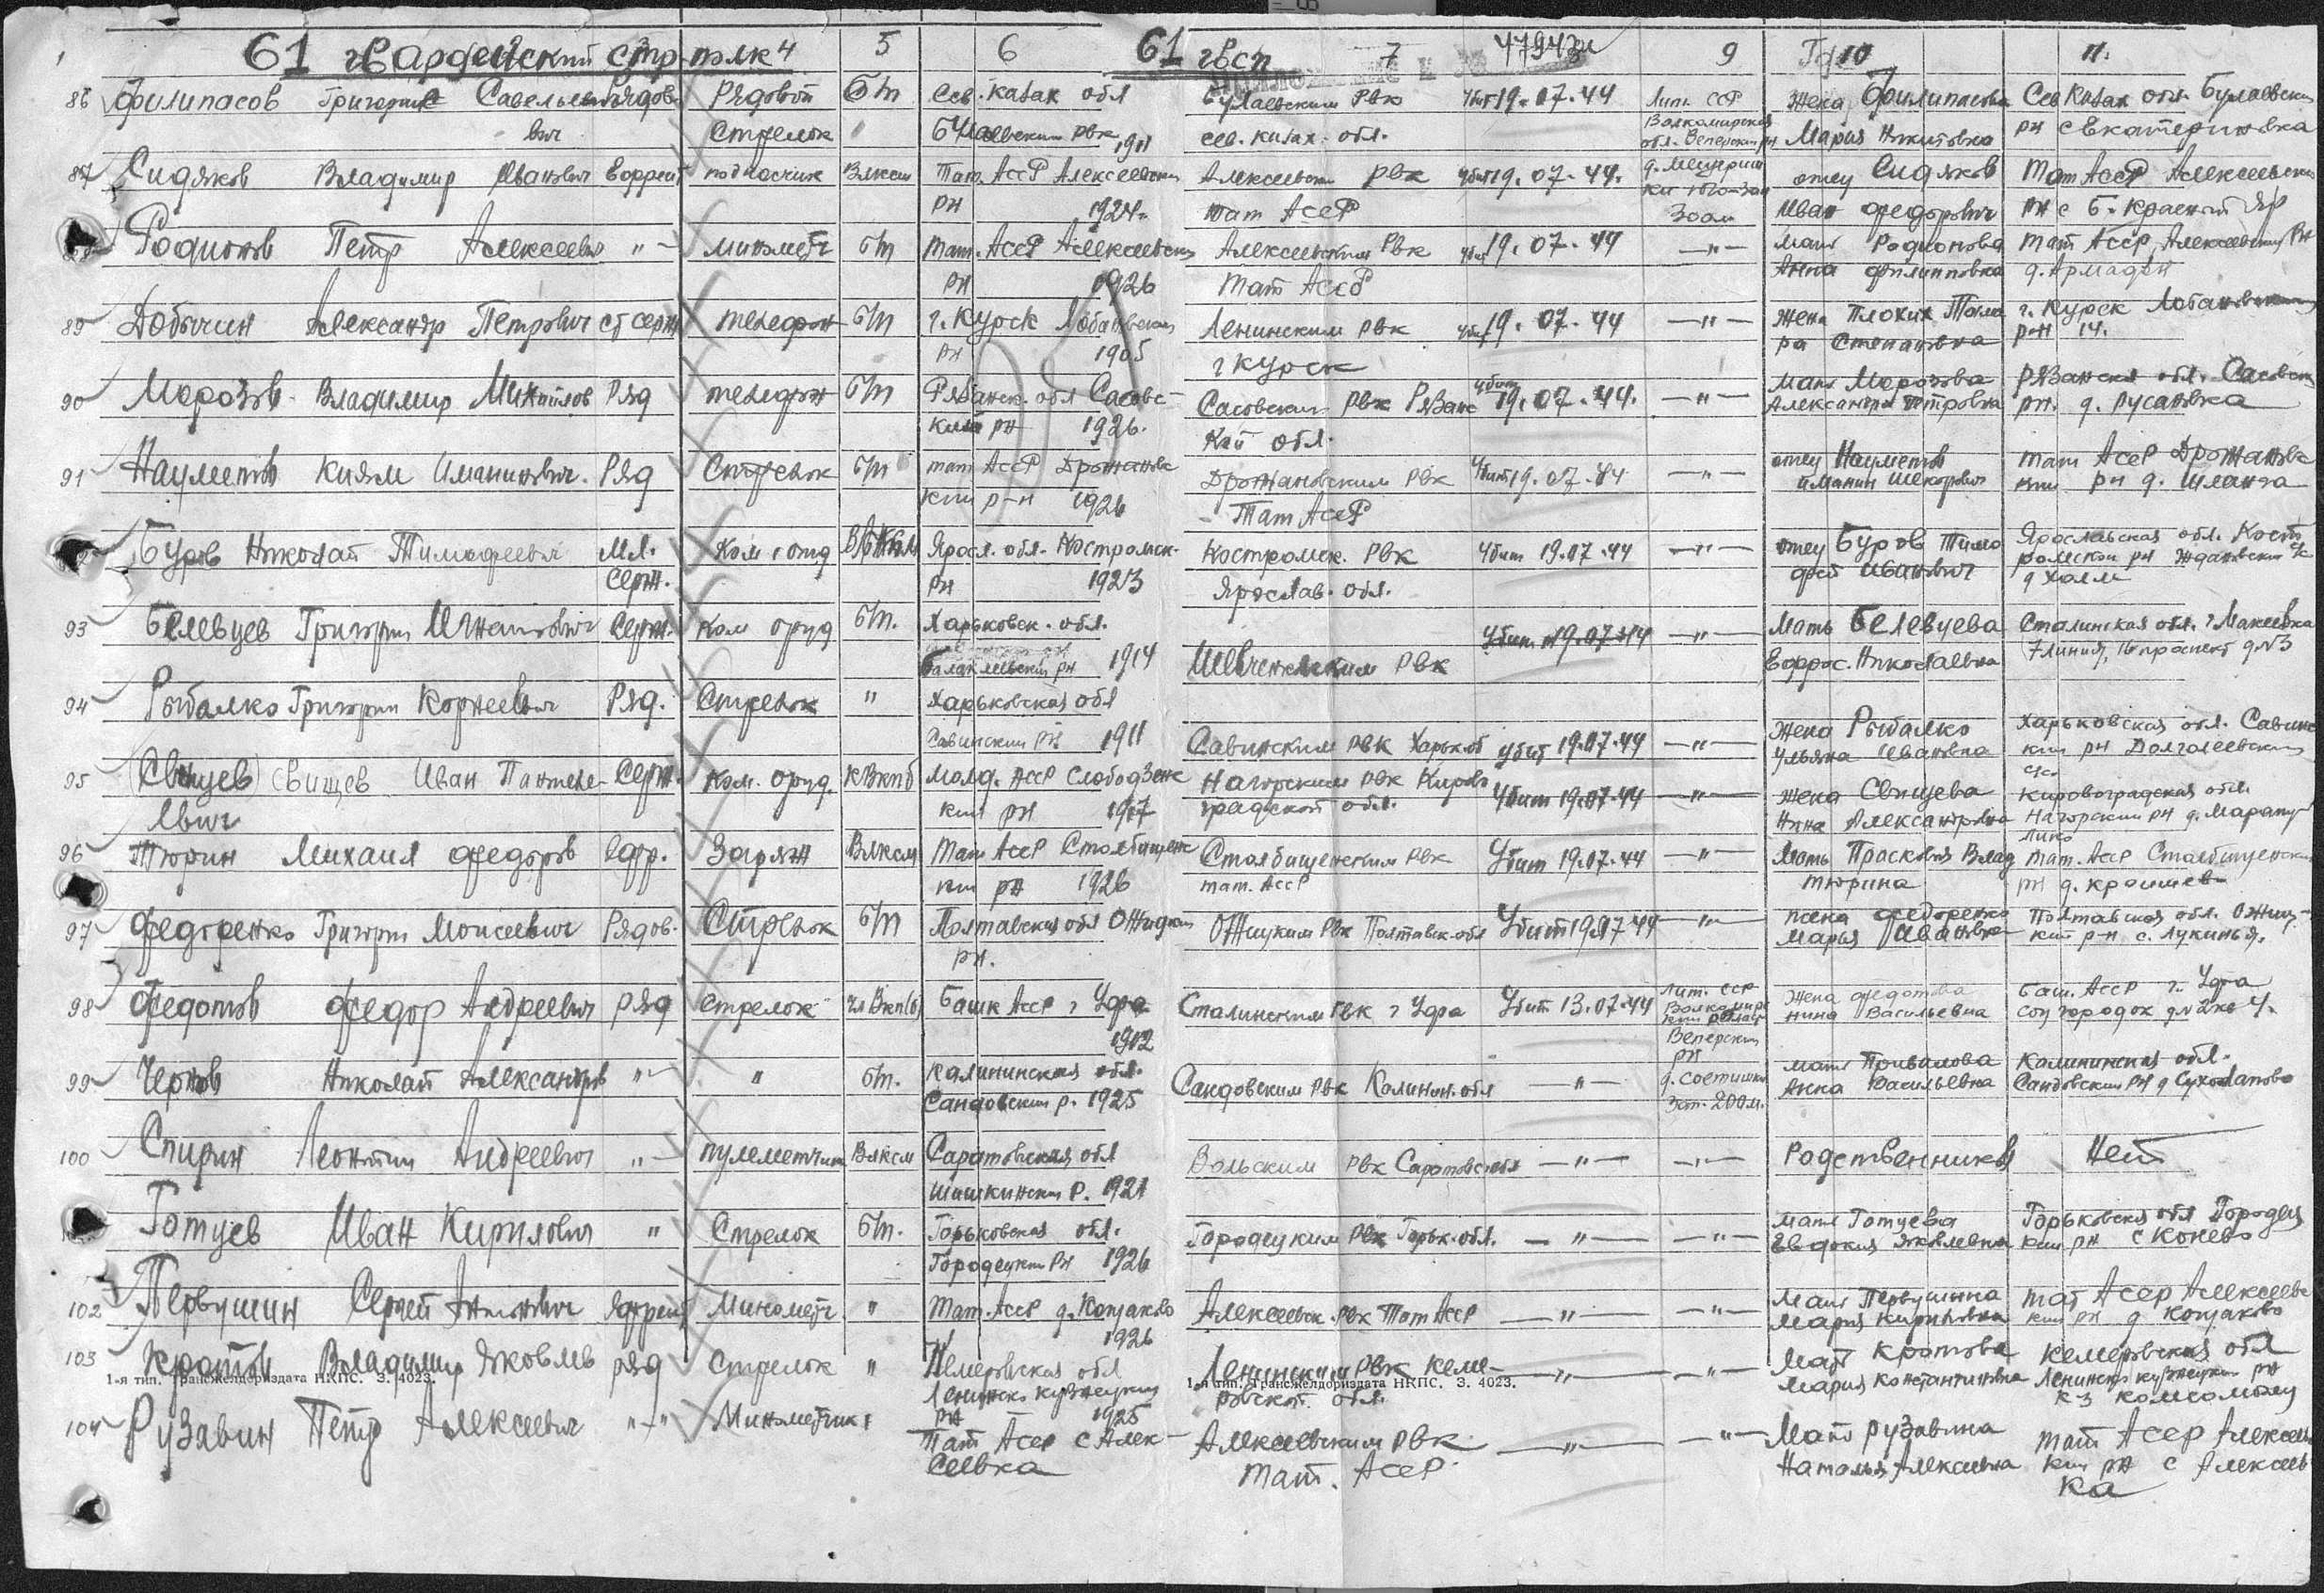 61 гвардейский стр. полк 4 5 6 61 гвсп 7 47943и 9 10 11.
86 Филипасов Григорий Савельевич Рядов. Рядовой Стрелок б/п Сев. Казах обл Булаевский РВК 1911 Булаевским РВК сев. Казах. обл. убит 19.07.44 Лит. ССР Жена Филипасова Мария Никитовна Сев Казах обл. Булаевский рн с Екатериновка
87 Сидяков Владимир Иванович Ефрейт подносчик Влксм Тат. АССР Алексеевский рн 1924. Алексеевским РВК Тат АССР убит 19.07.44. отец Сидяков Иван Федорович Тат АССР Алексеевский рн с Б. Красный Яр
Родионов Петр Алексеевич "- минометч б/п Тат. АССР Алексеевский рн 1926 Алексеевским РВК Тат АССР убит 19.07.44 -"- мать Родионова Анна Филипповна Тат АССР, Алексеевский РН
89 Добычин Александр Петрович ст серж телефон б/п г. Курск рн 1905 Ленинским РВК г Курск убит 19.07.44 -"- жена Плохих Тама ра Степановна г. Курск рн 14.
90 Морозов Владимир Михайлов Ряд телефон б/п Рязанск. обл Сасовс- кий рн 1926. Сасовским РВК Рязанс кой обл. убит 19.07.44. -"- мать Морозова Александра Петровна Рязанская обл. Сасовский рн. д. Русановка
91 Науметов Киям Иманинович. Ряд Стрелок б/п тат АССР Дрожановс кий р-н 1926 Дрожановским РВК Тат АССР Убит 19.07.44 -"- отец Науметов тат АССР Дрожановс кий рн д.
Буров Николай Тимофеевич Мл. серж. Ком. отд ВЛКСМ Яросл. обл. Костромск. рн 1923 Костромск. РВК Ярослав. обл. Убит 19.07.44 -"- отец Буров Тимо фей Иванович Ярославская обл. Кост ромской рн Ждановский с/с д Холм
93 Белевцев Григорий Игнатович Серж. Ком оруд б/п. Харьковск. обл. Балаклейский рн 1914 Шевченковским РВК Убит 19.07.44 -"- Мать Белевцева Ефрос. Николаевна Сталинская обл. г Макеевка 7 линия,
94 Рыбалко Григорий Корнеевич Ряд. Стрелок " Харьковская обл Савинский рн 1911 Савинским РВК Харьк. об Убит 19.07.44 -"- Жена Рыбалко Ульяна Ивановна Харьковская обл. Савинс кий рн Долгалеевский с/с.
95 (Свинцев) Свищев Иван Пантеле- евич Серж. Ком. оруд. КВКПб Молд. АССР Слободзейс кий рн 1917 Кирово градской обл. Убит 19.07.44 -"- жена Свищева Нина Александровна Кировоградская обл.
96 Тюрин Михаил Федоров ефр. Заряж Влксм Тат АССР Столбищенс кий рн 1926 Столбищенским РВК тат. АССР Убит 19.07.44 -"- Мать Прасковья Влад Тюрина Тат. АССР Столбищенский рн д.
97 Федоренко Григорий Моисеевич Рядов. Стрелок б/п Полтавская обл Оржицкий рн. Оржицким РВК Полтавск. обл Убит 19.07.44 -"- жена Федоренко Марья Ивановна Полтавская обл. Оржиц- кий р-н с.
98 Федотов Федор Андреевич ряд стрелок чл ВКП(б) Башк АССР г Уфа 1902 Сталинским ГВК г Уфа Убит 13.07.44 Лит. ССР Жена Федотова Нина Васильевна Баш. АССР г. Уфа соц городок
99 Чернов Николай Александров "- " б/п. Калининская обл. Сандовский р. 1925 Сандовским РВК Калинин. обл -"- 200 м. мать Привалова Анна Васильевна Калининская обл. Сандовский РН д Сухолапово
100 Спирин Леонтий Андреевич "- пулеметчик Влксм Саратовская обл р. 1921 Вольским РВК Саратовс обл -"- -"- Родственников Нет
Готуев Иван Кирилович " Стрелок б/п. Горьковская обл. Городецкий рн 1926 Городецким РВК Горьк. обл. -"- -"- мать Готуева Евдокия Яковлевна Горьковская обл Городец кий рн с Конево
102 Первушин Сергей Антонович Ефрейт Минометч. " Тат. АССР 1926 Алексеевск. РВК Тат АССР -"- -"- мать Первушина Мария Кирилловна Тат АССР Алексеевс кий рн
103 Кротов Владимир Яковлев ряд стрелок " Кемеровская обл Ленинско кузнецкий рн 1925 Ленинским РВК Кеме- ровской обл. -"- -"- Мать Кротова Мария Константиновна Кемеровская обл Ленинско кузнецкий рн
1-я тип. Трансжелдориздата НКПС. З. 4023. 1-я тип. Трансжелдориздата НКПС. З. 4023.
104 Рузавин Петр Алексеевич "-" Минометчик Тат АССР с Алек- сеевка Алексеевским РВК Тат. АССР -"- -"- Мать Рузавина Наталья Алексеевна Тат АССР Алексеевс кий рн с Алексеев ка